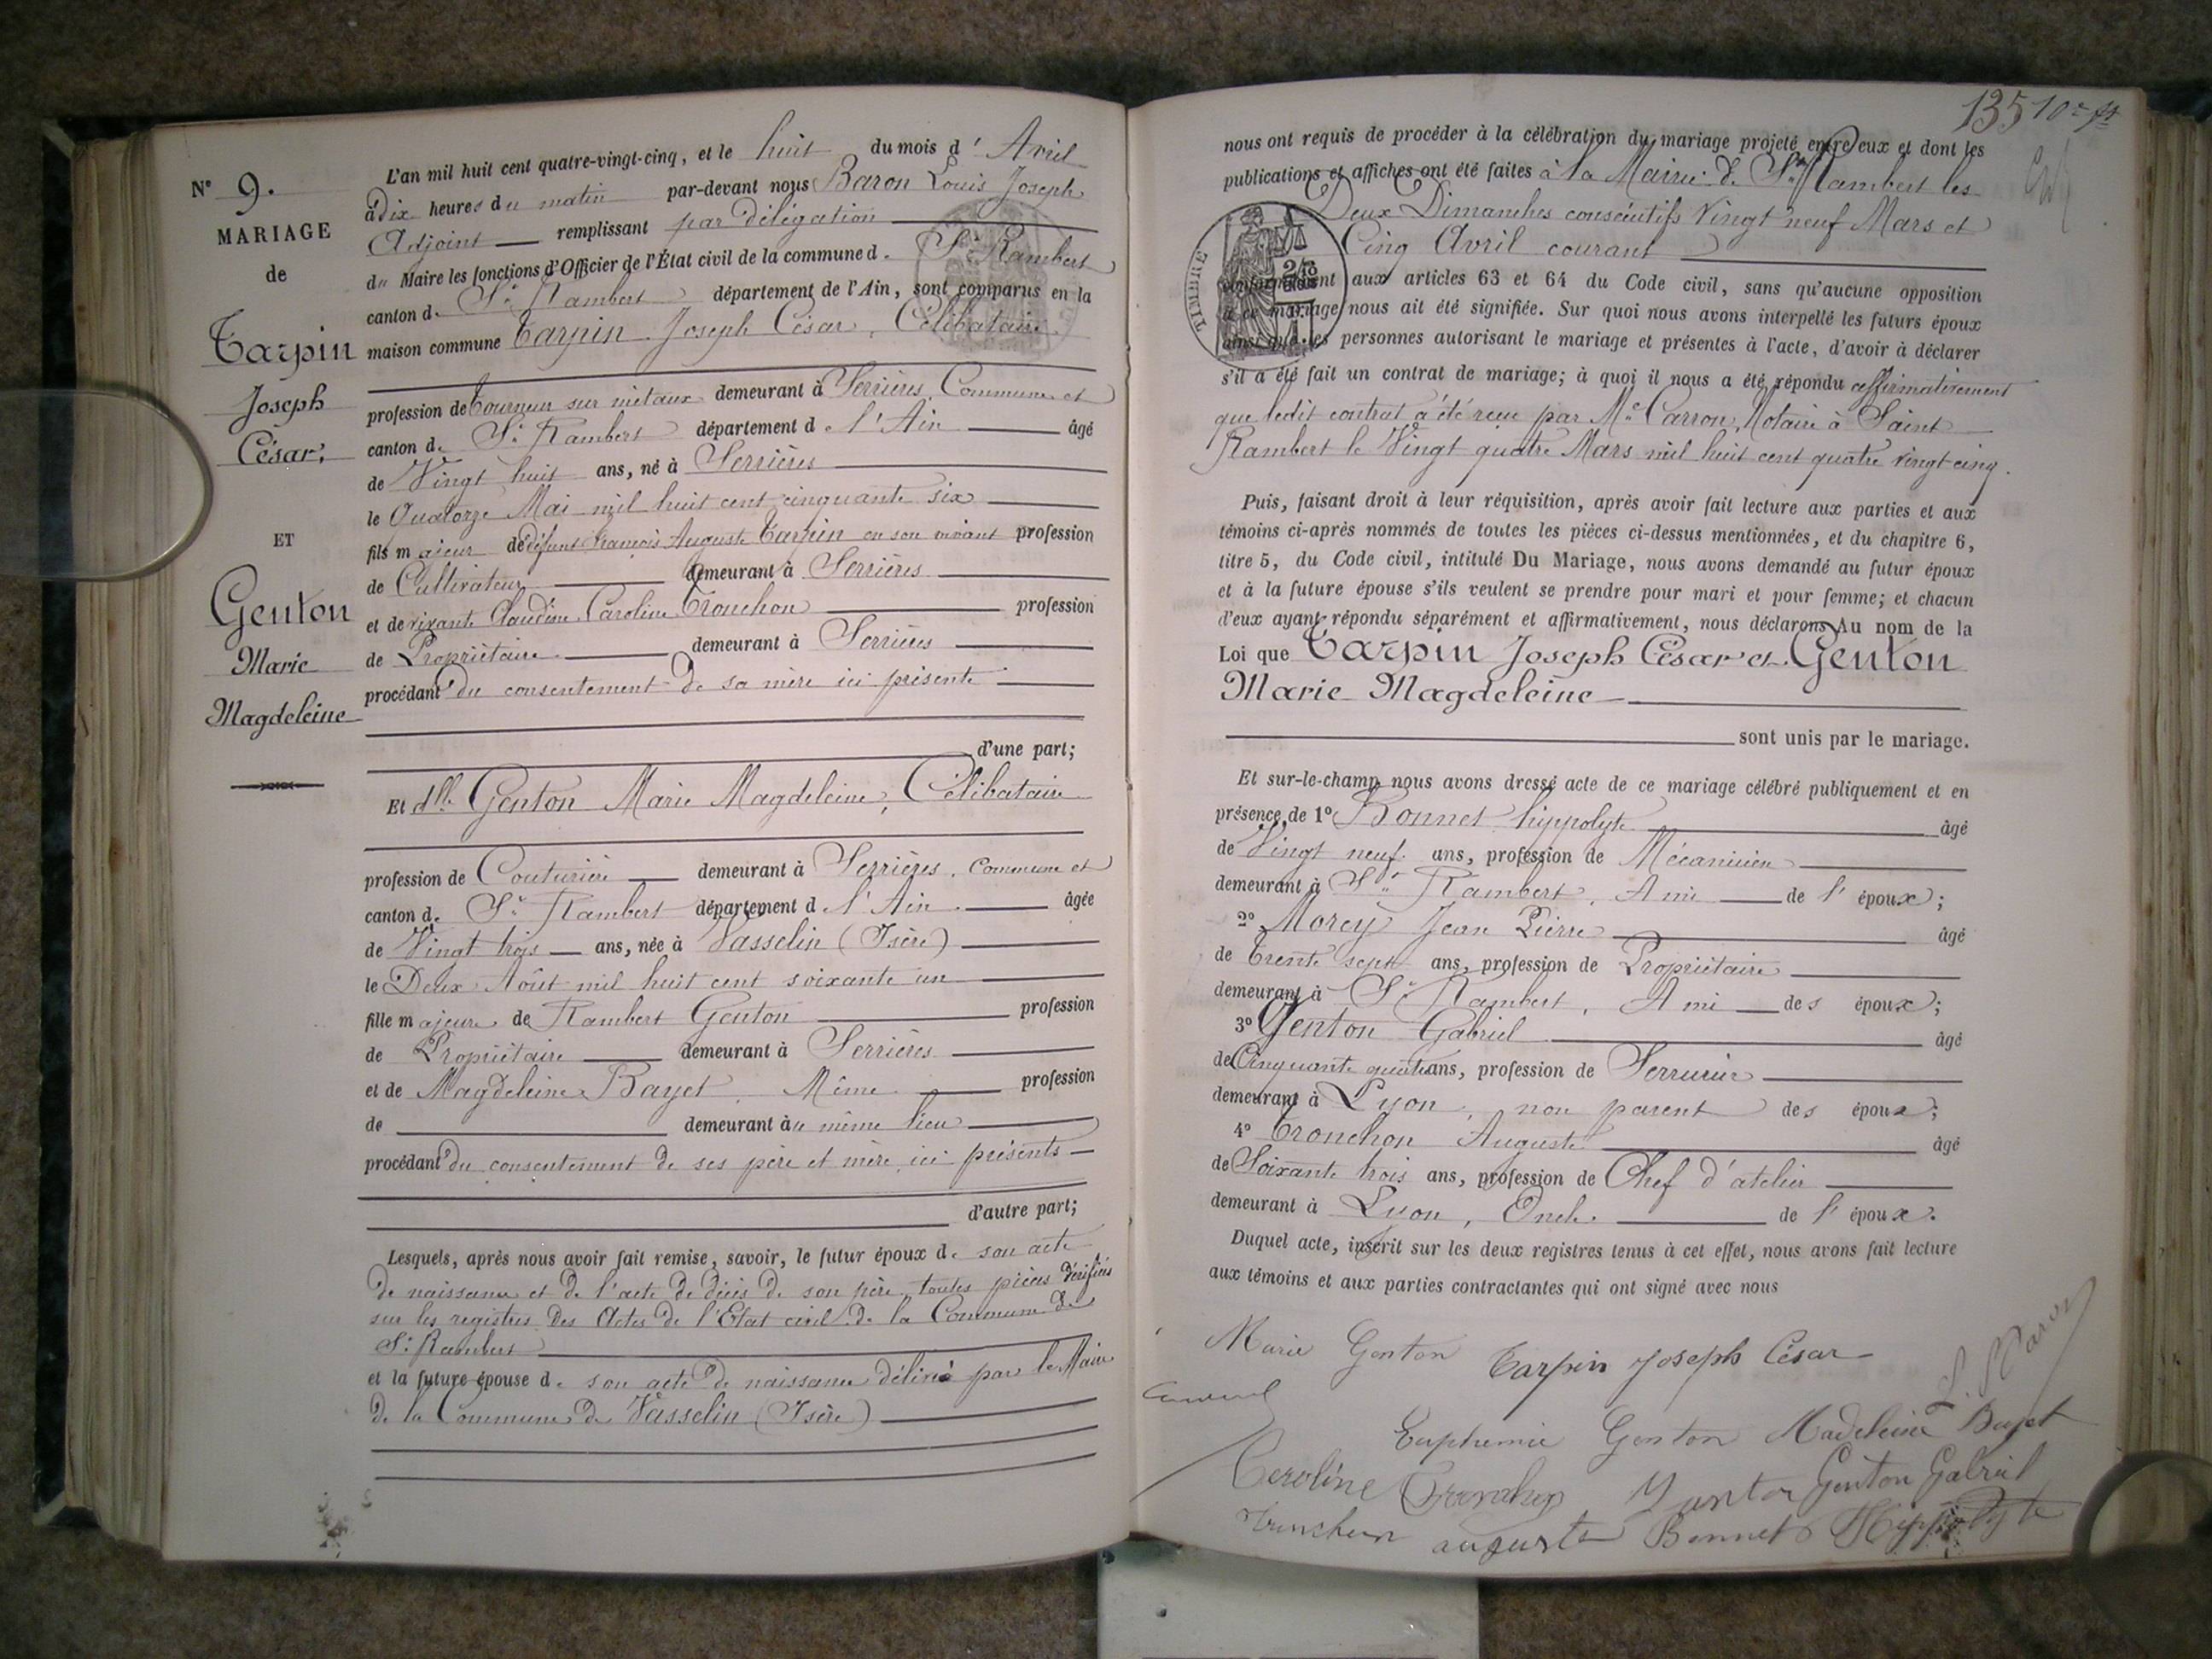 N° 9.
MARIAGE
de
Tarpin
Joseph
César,
ET
Genton
Marie
Magdeleine
L'an mil huit cent quatre-vingt-cinq, et le huit du mois d' Avril
à dix heures du matin par-devant nous Baron Louis Joseph
Adjoint remplissant par délégation
du Maire les fonctions d'Officier de l'État civil de la commune de St Rambert
canton de St Rambert département de l'Ain, sont comparus en la
maison commune Tarpin Joseph César, Célibataire
profession de Tourneur sur métaux demeurant à Serrières, Commune et
canton de St Rambert département de l'Ain âgé
de Vingt huit ans, né à Serrières
le Quatorze Mai mil huit cent cinquante six
fils majeur de défunt François Auguste Tarpin en son vivant profession
de Cultivateur demeurant à Serrières
et de vivante Claudine Caroline Tronchon profession
de Propriétaire demeurant à Serrières
procédant du consentement de sa mère ici présente
d'une part;
Et dlle Genton Marie Magdeleine, Célibataire
profession de Couturière demeurant à Serrières, Commune et
canton de St Rambert département de l'Ain âgée
de Vingt trois ans, née à Vasselin (Isère)
le Deux Août mil huit cent soixante un
fille majeure de Rambert Genton profession
de Propriétaire demeurant à Serrières
et de Magdeleine Bayet, Même profession
de demeurant au même lieu
procédant du consentement de ses père et mère ici présents
d'autre part;
Lesquels, après nous avoir fait remise, savoir, le futur époux de son acte
de naissance et de l'acte de décès de son père, toutes pièces vérifiées
sur les registres des Actes de l'Etat civil de la Commune de
St Rambert
et la future épouse de son acte de naissance délivré par le Maire
de la Commune de Vasselin (Isère)
135
nous ont requis de procéder à la célébration du mariage projeté entre eux et dont les
publications et affiches ont été faites à la Mairie de St Rambert les
Deux Dimanches consécutifs Vingt neuf Mars et
Cinq Avril courant
TIMBRE
conformément aux articles 63 et 64 du Code civil, sans qu'aucune opposition
à ce mariage nous ait été signifiée. Sur quoi nous avons interpellé les futurs époux
ainsi que les personnes autorisant le mariage et présentes à l'acte, d'avoir à déclarer
s'il a été fait un contrat de mariage; à quoi il nous a été répondu affirmativement
que ledit contrat a été reçu par Me Carron, Notaire à Saint
Rambert le Vingt quatre Mars mil huit cent quatre vingt cinq.
Puis, faisant droit à leur réquisition, après avoir fait lecture aux parties et aux
témoins ci-après nommés de toutes les pièces ci-dessus mentionnées, et du chapitre 6,
titre 5, du Code civil, intitulé Du Mariage, nous avons demandé au futur époux
et à la future épouse s'ils veulent se prendre pour mari et pour femme; et chacun
d'eux ayant répondu séparément et affirmativement, nous déclarons Au nom de la
Loi que Tarpin Joseph César et Genton
Marie Magdeleine
sont unis par le mariage.
Et sur-le-champ nous avons dressé acte de ce mariage célébré publiquement et en
présence de 1° Bonnet hippolyte âgé
de Vingt neuf ans, profession de Mécanicien
demeurant à St Rambert, Ami de l' époux;
2° Morey Jean Pierre âgé
de Trente sept ans, profession de Propriétaire
demeurant à St Rambert, Ami des époux;
3° Genton Gabriel âgé
de Cinquante quatre ans, profession de Serrurier
demeurant à Lyon, non parent des époux;
4° Tronchon Auguste âgé
de Soixante trois ans, profession de Chef d'atelier
demeurant à Lyon, Oncle de l' époux.
Duquel acte, inscrit sur les deux registres tenus à cet effet, nous avons fait lecture
aux témoins et aux parties contractantes qui ont signé avec nous
Marie Genton Tarpin Joseph César
L. Baron
Euphemie Genton Madeleine Bayet
Caroline Tronchon Genton Genton Gabriel
Tronchon auguste Bonnet Hippolyte